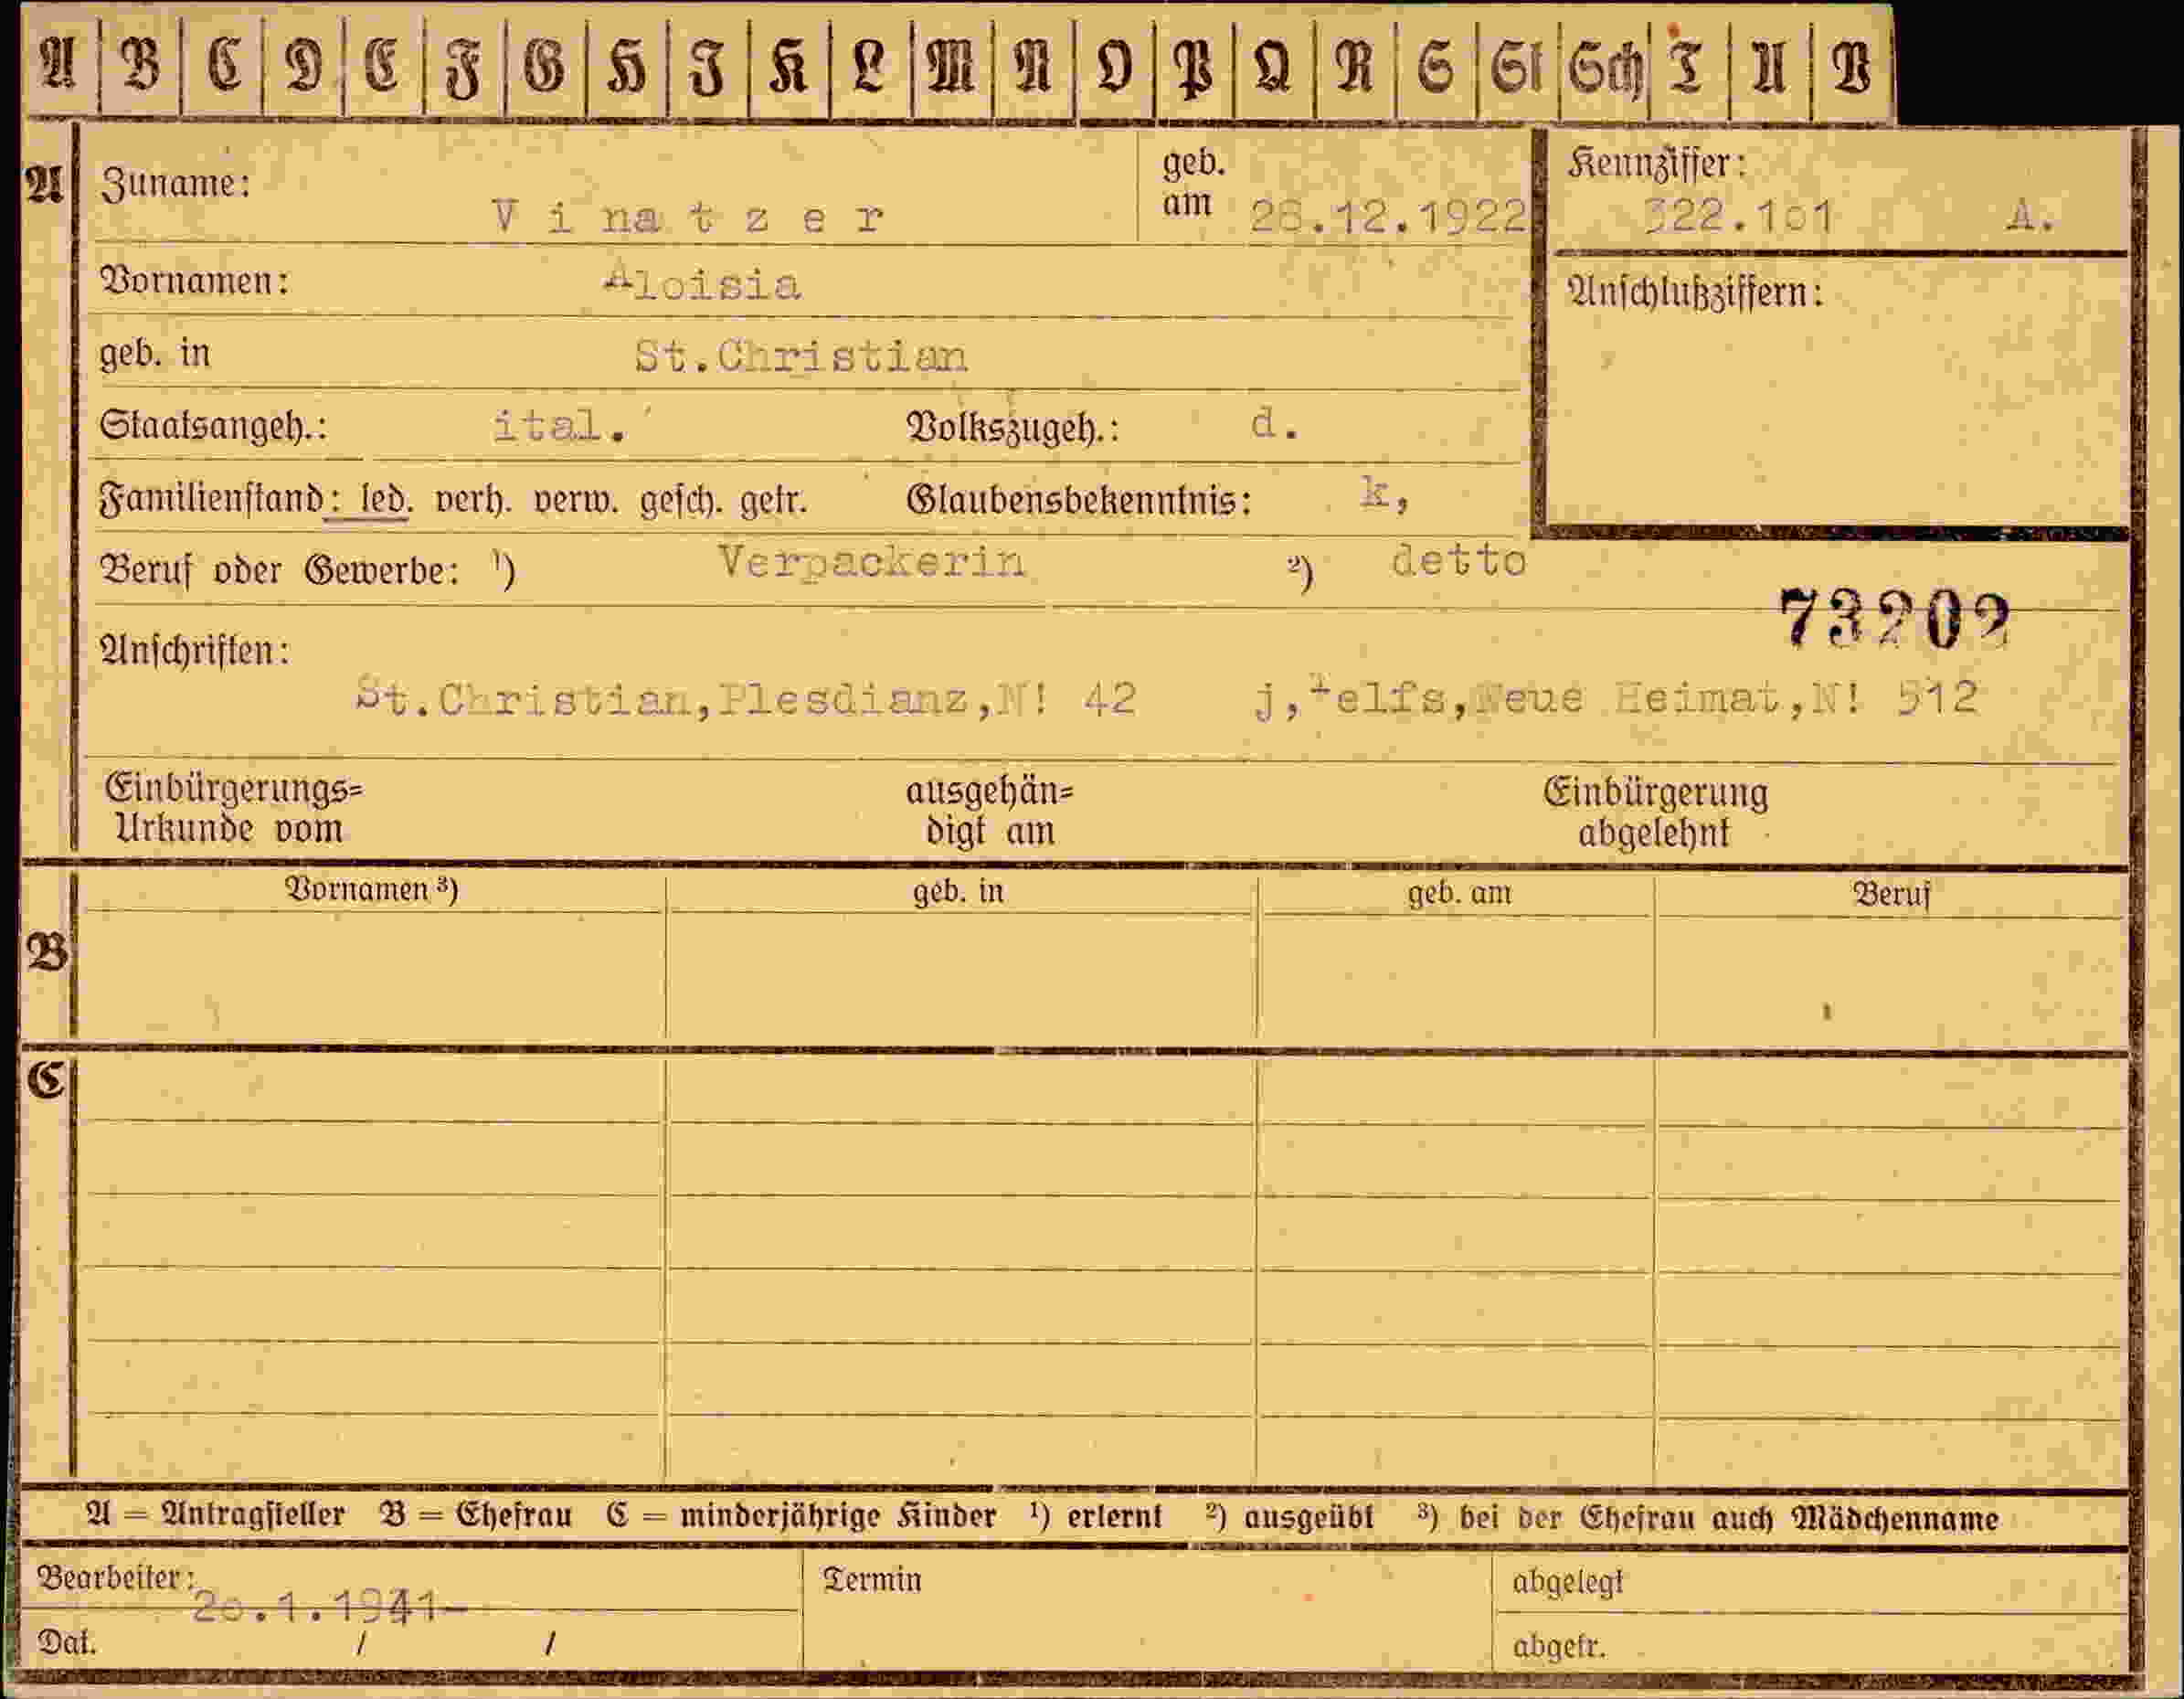 A B C D E F G H I K L M N O P Q R S St Sch T U V
A
Zuname: Vinatzer
geb. am 28.12.1922
Kennziffer: 322.101 A.
Vornamen: Aloisia
Anschlußziffern:
geb. in St.Christian
Staatsangeh.: ital. Volkszugeh.: d.
Familienstand: led. verh. verw. gesch. getr. Glaubensbekenntnis: k,
Beruf oder Gewerbe: ¹) Verpackerin ²) detto
73202
Anschriften:
St.Christian,Plesdianz,N! 42 j,Telfs,Neue Heimat,N! 512
Einbürgerungs= ausgehän= Einbürgerung
Urkunde vom digt am abgelehnt
B
Vornamen ³) geb. in geb. am Beruf
C
A = Antragsteller B = Ehefrau C = minderjährige Kinder ¹) erlernt ²) ausgeübt ³) bei der Ehefrau auch Mädchenname
Bearbeiter: Termin abgelegt
20.1.1941-
Dat. / / abgetr.